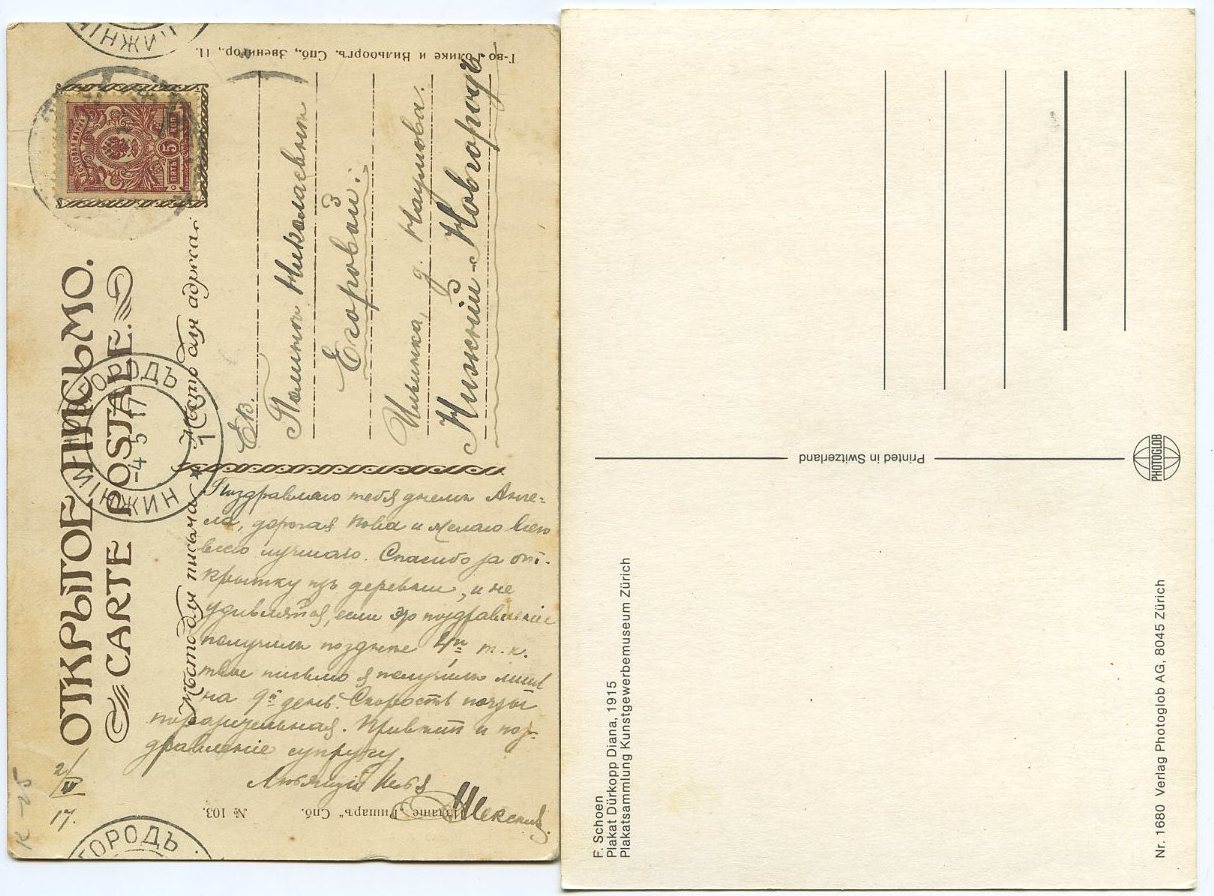 ОТКРЫТОЕ ПИСЬМО.
CARTE POSTALE.
Мѣсто для письма
Мѣсто для адреса
Т-во Голике и Вильборгъ. Спб., Звенигор., 11.
ПЯТЬ 5 КОП
НИЖНІЙ
НИЖНІЙ НОВГОРОДЪ
-4 5 17
★ 1
Ев.
Полинѣ Николаевнѣ
Егоровой.
Ильинка, д. Наумова.
Нижній-Новгородъ
Поздравляю тебя днемъ Анге-
ла, дорогая и желаю всего
всего лучшаго. Спасибо за от-
крытку изъ деревни, и не
удивляйся, если это поздравленіе
получишь позднѣе 4го т.к.
твое письмо я получилъ лишь
на 9й день. Скорость почты
поразительная. Привѣтъ и поз-
дравленіе супругу
Любящій тебя
17.
К-25
Изданіе „Ришаръ" Спб.
№ 103.
ГОРОДЪ
Printed in Switzerland
PHOTOGLOB
F. Schoen
Plakat Dürkopp Diana, 1915
Plakatsammlung Kunstgewerbemuseum Zürich
Nr. 1680 Verlag Photoglob AG, 8045 Zürich